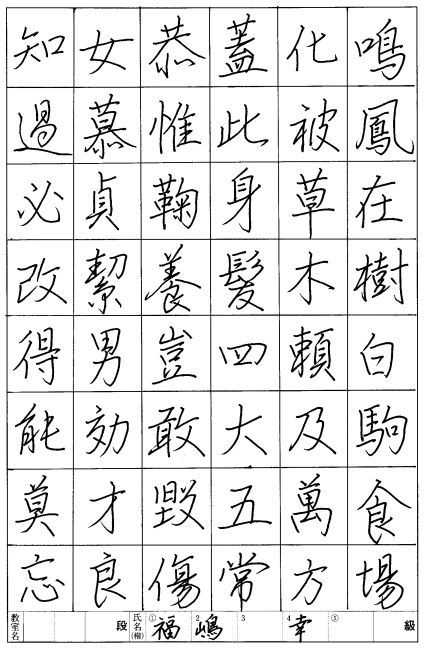 鳴鳳在樹白駒食場
化被草木賴及萬方
蓋此身髮四大五常
恭惟鞠養豈敢毀傷
女慕貞絜男効才良
知過必改得能莫忘
教室名 段 氏名(権) ①福 2嶋 3 4幸 ⑤ 級